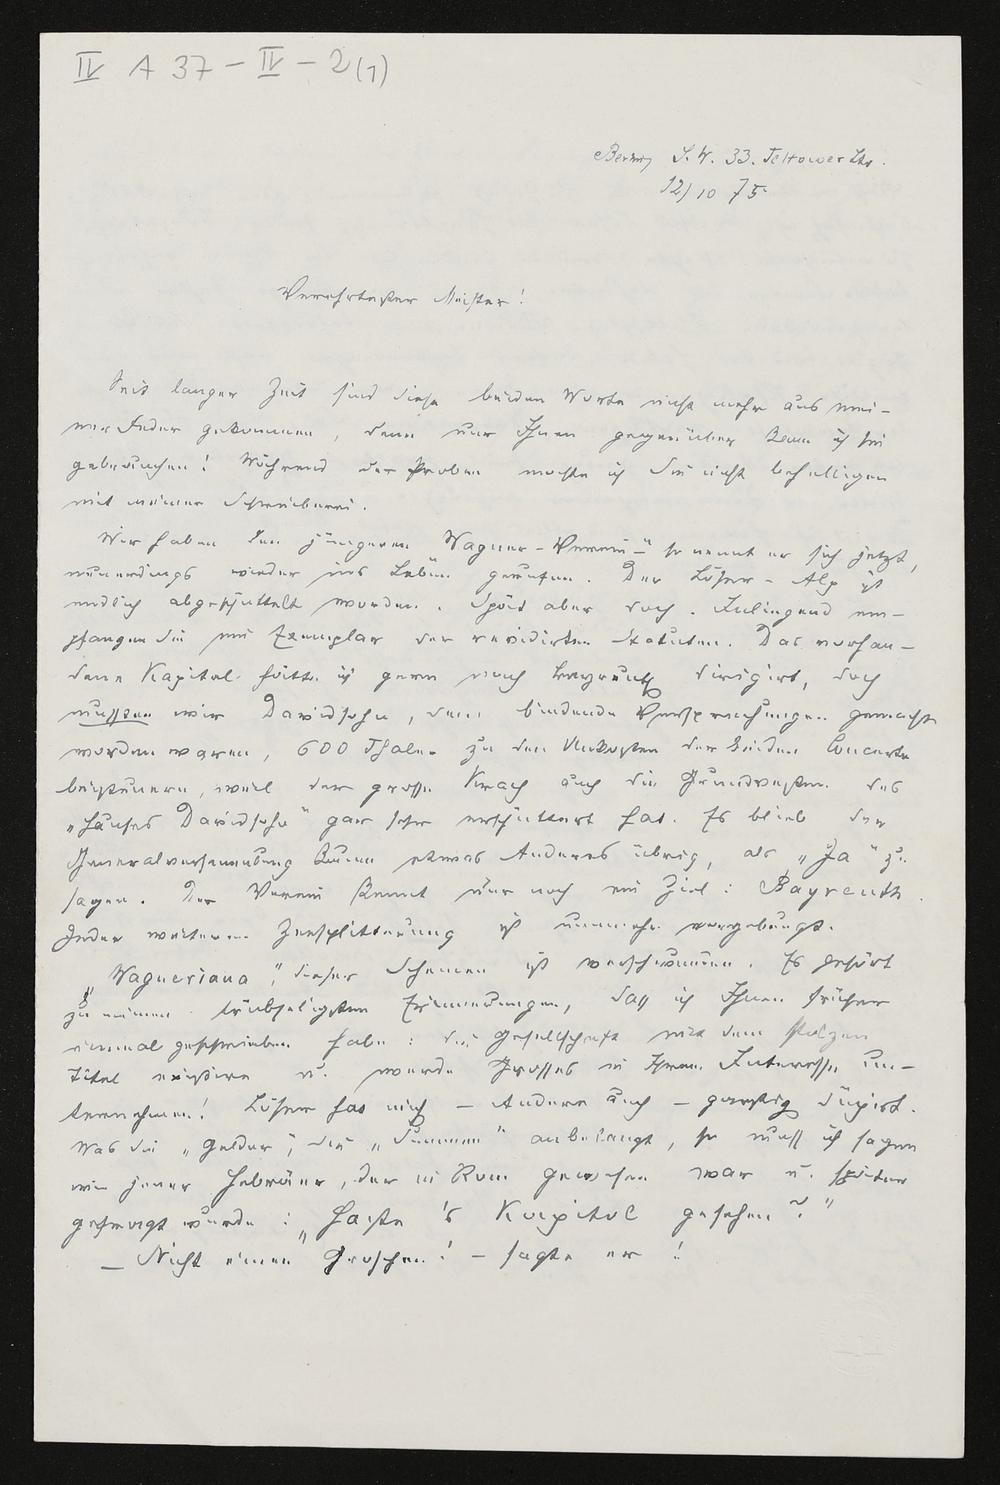 IV A 37 – IV – 2 (1)
Berlin S. W. 33. Teltower Str.
12/10 75
Verehrtester Meister!
Seit langer Zeit sind diese beiden Worte nicht mehr aus mei-
ner Feder gekommen, denn nur Ihnen gegenüber kann ich sie
gebrauchen! Während der Proben mochte ich Sie nicht behelligen
mit meiner Schreiberei.
Wir haben den jüngeren „Wagner-Verein" so nennt er sich jetzt,
neuerdings wieder ins Leben gerufen. Der Löser-Alp ist
endlich abgeschüttelt worden. Spät aber doch. Inliegend em-
pfangen Sie ein Exemplar der revidirten Statuten. Das vorhan-
dene Kapital hätte ich gern nach Bayreuth dirigirt, doch
mussten wir Davidsohn, dem bindende Versprechungen gemacht
worden waren, 600 Thaler zu den Unkosten der beiden Concerte
beisteuern, weil der grosse Krach auch die Grundvesten des
„Hauses Davidsohn" gar sehr erschüttert hat. Es blieb der
Generalversammlung kaum etwas Anderes übrig, als „Ja" zu
sagen. Der Verein kennt nur noch ein Ziel: Bayreuth.
Jeder weiteren Zersplitterung ist nunmehr vorgebeugt.
„Wagneriana", dieser Schemen ist verschwunden. Es gehört
zu meinen trübseligsten Erinnerungen, dass ich Ihnen früher
einmal geschrieben habe: die Gesellschaft mit dem stolzen
Titel existire u. werde Grosses in Ihrem Interesse un-
ternehmen! Löser hat mich – Andere auch – garstig düpirt.
Was die „Gelder", die „Summen" anbelangt, so muss ich sagen
wie jener Hebräer, der in Rom gewesen war u. später
gefragt wurde: „Haste 's Kapitol gesehen?"
– Nicht einen Groschen! – sagte er!